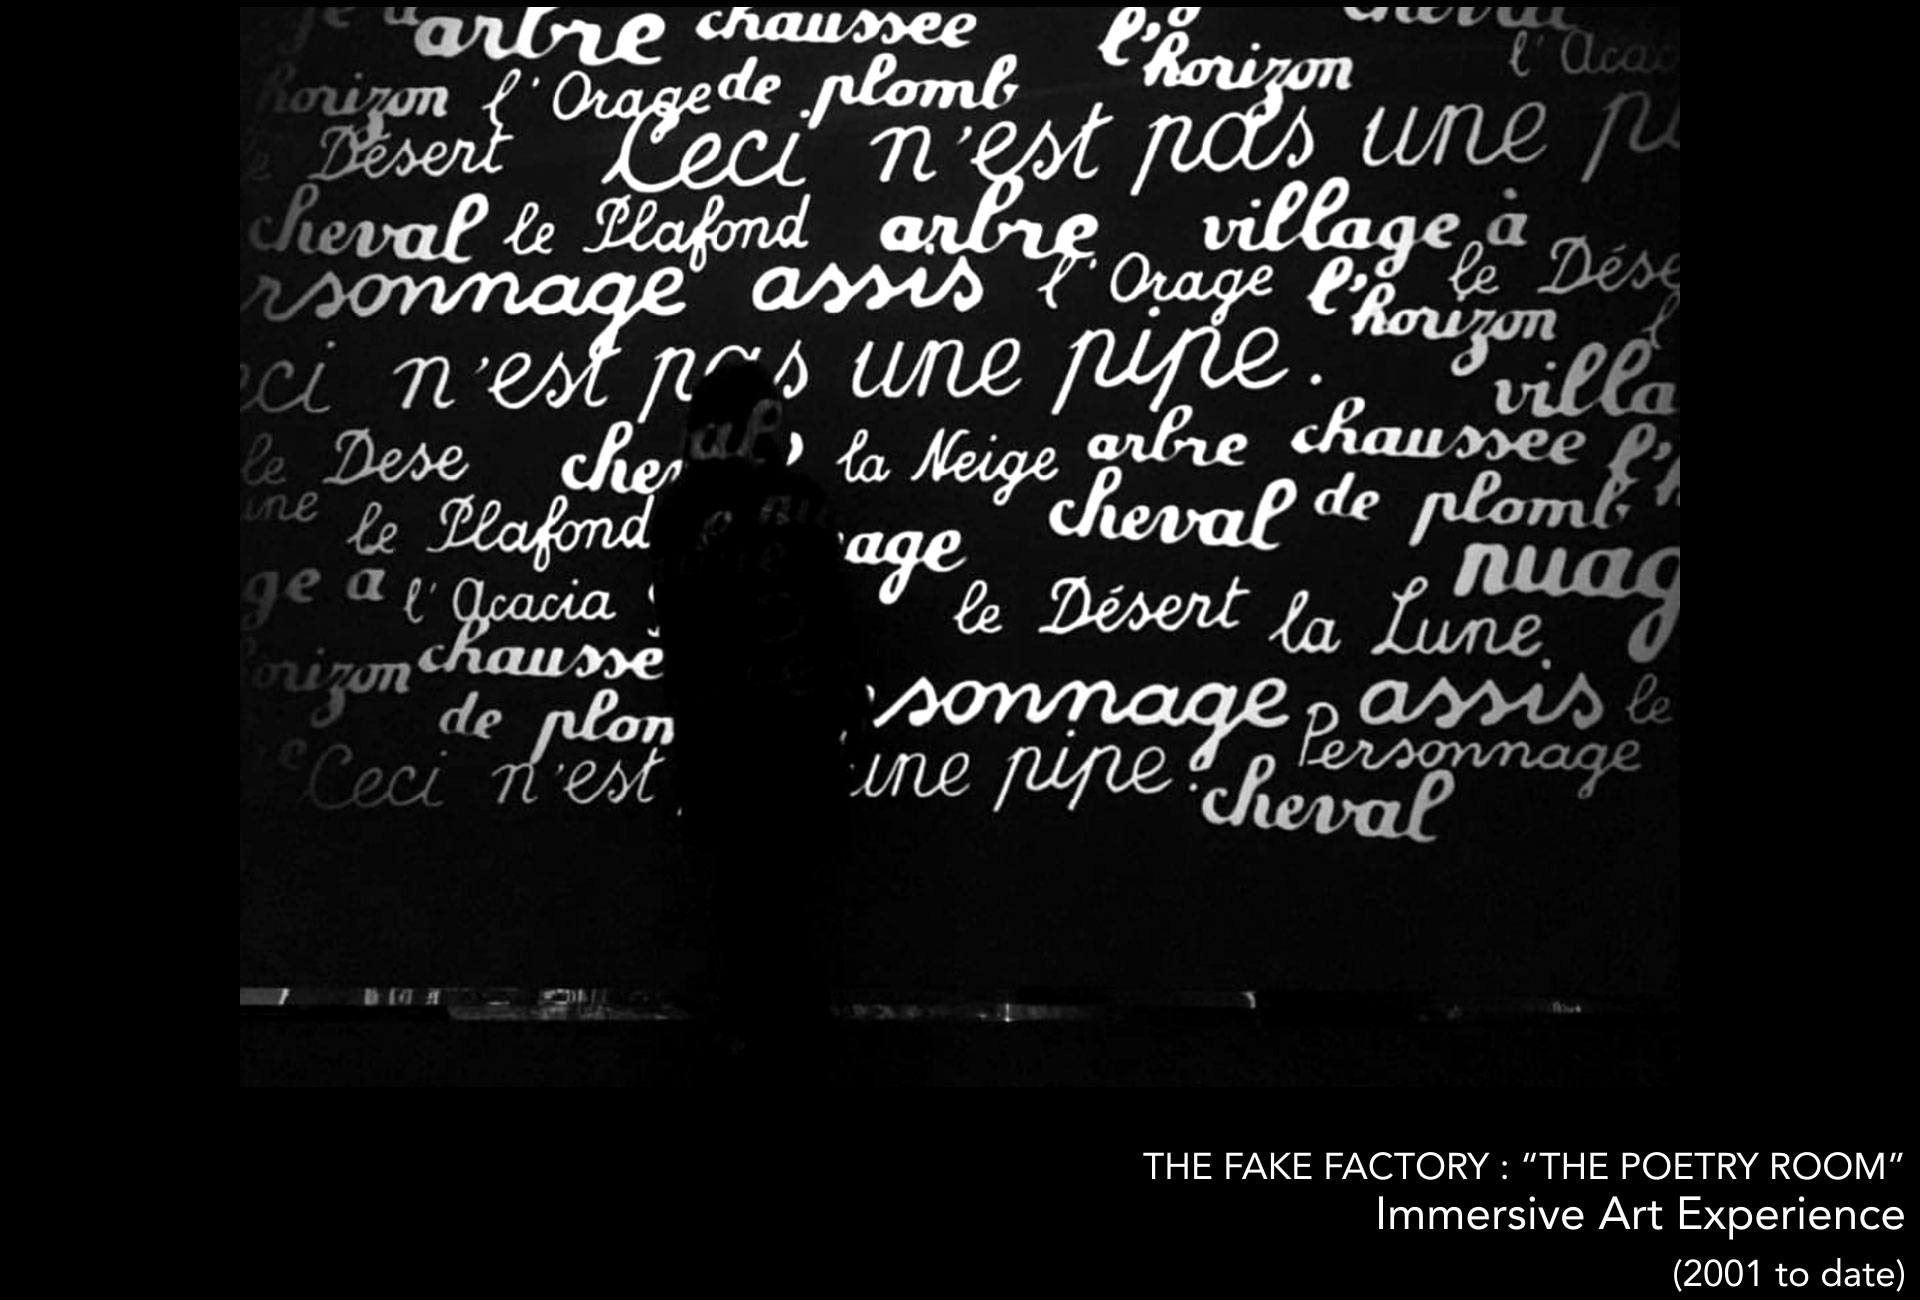 arbre chaussee l'horizon cheval l'Acac
horizon l'Orage de plomb
Désert Ceci n'est pas une pi
cheval le Plafond arbre village à
rsonnage assis l'Orage l'horizon le Dése
eci n'est pas une pipe. villa
le Dese che la Neige arbre chaussee l'h
le Plafond age cheval de plomb
ge a l'Acacia le Désert la Lune nuag
orizon chausse
de plom sonnage assis le
Ceci n'est une pipe. Personnage
cheval
THE FAKE FACTORY : “THE POETRY ROOM”
Immersive Art Experience
(2001 to date)